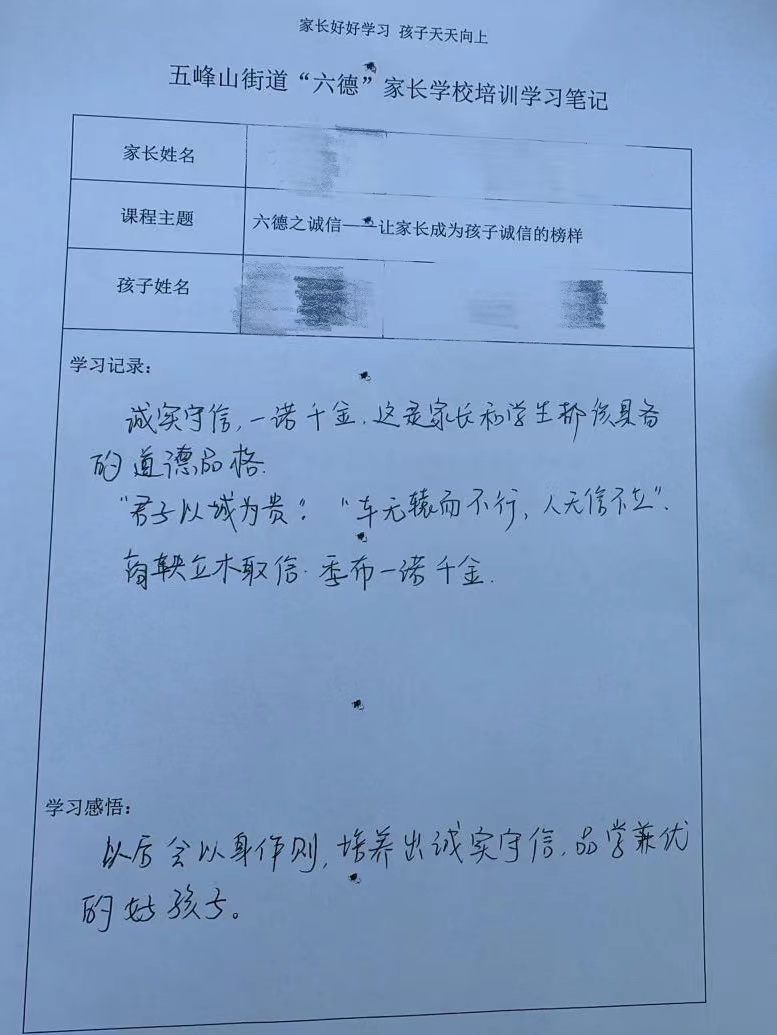 家长好好学习 孩子天天向上
五峰山街道“六德”家长学校培训学习笔记
家长姓名
课程主题 六德之诚信——让家长成为孩子诚信的榜样
孩子姓名
学习记录：
诚实守信，一诺千金，这是家长和学生都该具备
的道德品格.
“君子以城为贵”。“车无辕而不行，人无信不立”.
商鞅立木取信. 季布一诺千金.
学习感悟：
以后会以身作则，培养出诚实守信，品学兼优
的好孩子。